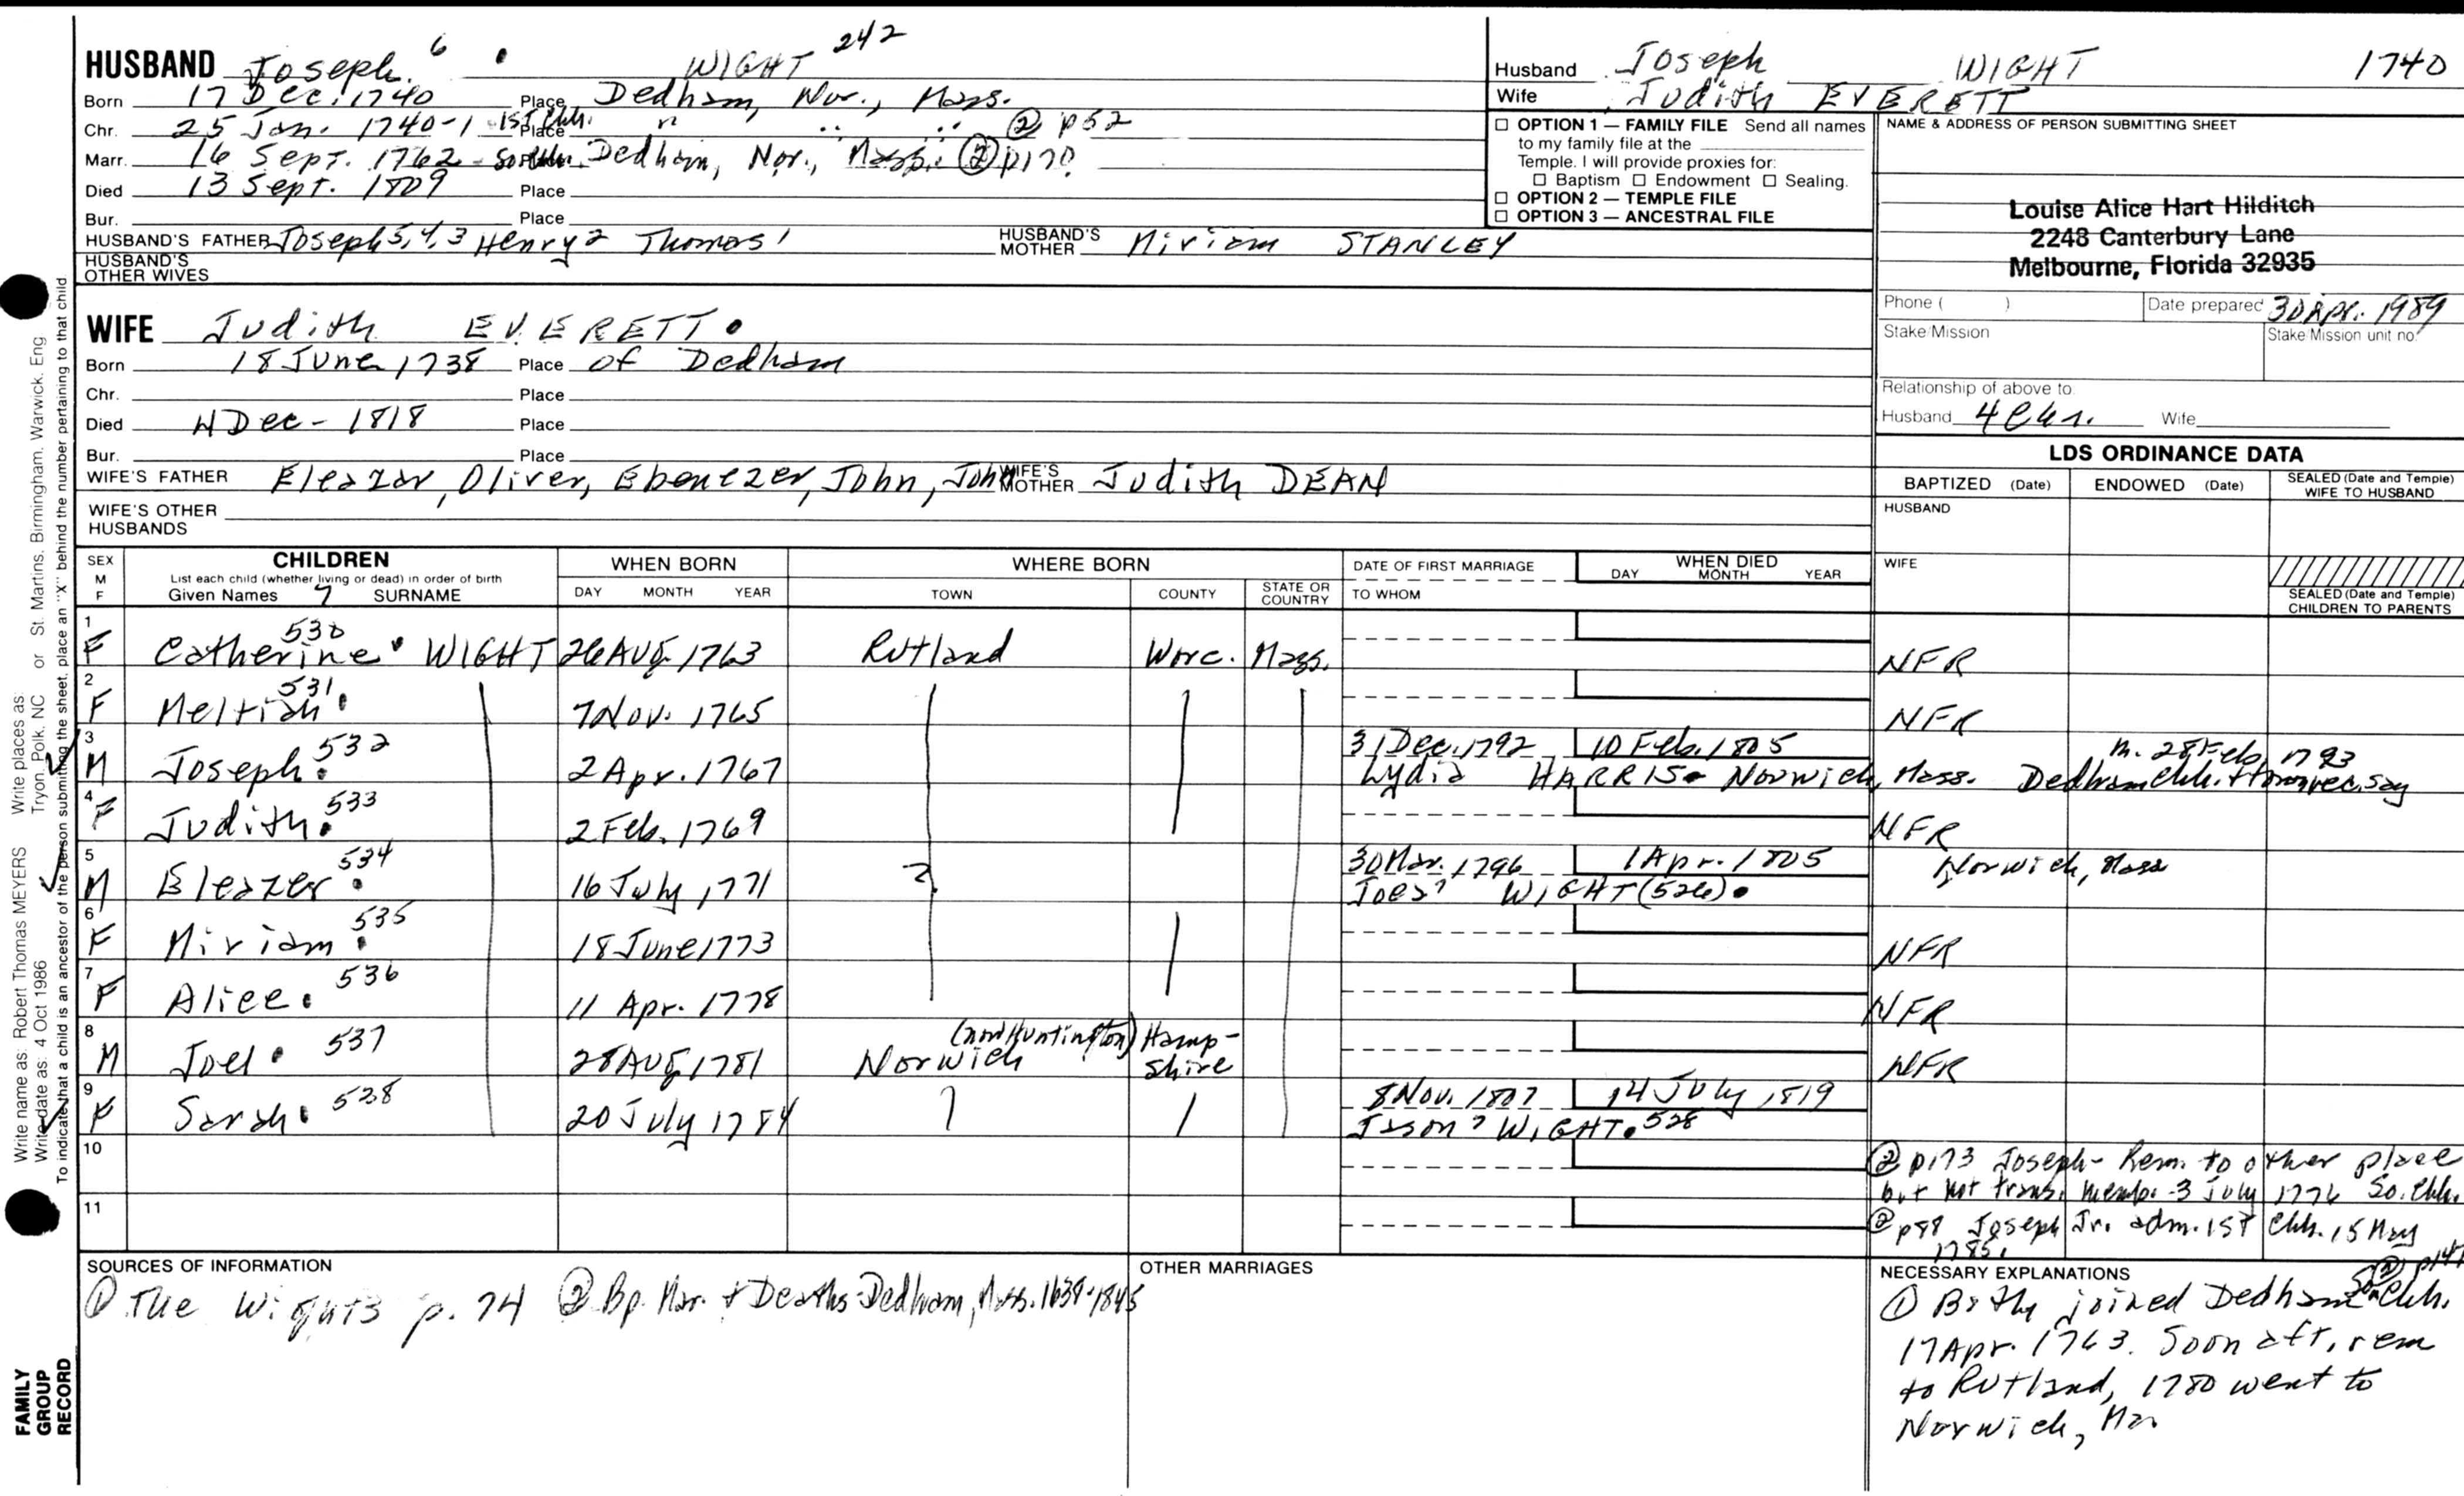 HUSBAND Joseph 6 WIGHT 242
Born 17 Dec. 1740 Place Dedham, Nor., Mass.
Chr. 25 Jan. 1740-1 1st Chh. Place " " " ② p52
Marr. 16 Sept. 1762 Dedham, Nor., Mass. ② p170
Died 13 Sept. 1809 Place
Bur. Place
HUSBAND'S FATHER Joseph 5,4,3 Henry 2 Thomas 1 HUSBAND'S MOTHER Miriam STANLEY
HUSBAND'S OTHER WIVES
WIFE Judith EVERETT
Born 18 June 1738 Place of Dedham
Chr. Place
Died 4 Dec - 1818 Place
Bur. Place
WIFE'S FATHER Eleazar, Oliver, Ebenezer, John, John WIFE'S MOTHER Judith DEAN
WIFE'S OTHER HUSBANDS
Husband Joseph WIGHT 1740
Wife Judith EVERETT
☐ OPTION 1 — FAMILY FILE Send all names
to my family file at the
Temple. I will provide proxies for:
☐ Baptism ☐ Endowment ☐ Sealing.
☐ OPTION 2 — TEMPLE FILE
☐ OPTION 3 — ANCESTRAL FILE
NAME & ADDRESS OF PERSON SUBMITTING SHEET
Louise Alice Hart Hilditch
2248 Canterbury Lane
Melbourne, Florida 32935
Phone ( ) Date prepared 30 Apr. 1989
Stake/Mission Stake/Mission unit no.
Relationship of above to
Husband 4 Wife
LDS ORDINANCE DATA
BAPTIZED (Date) ENDOWED (Date) SEALED (Date and Temple) WIFE TO HUSBAND
HUSBAND
WIFE
SEALED (Date and Temple) CHILDREN TO PARENTS
SEX M F CHILDREN WHEN BORN WHERE BORN DATE OF FIRST MARRIAGE WHEN DIED
List each child (whether living or dead) in order of birth
Given Names 7 SURNAME DAY MONTH YEAR TOWN COUNTY STATE OR COUNTRY TO WHOM DAY MONTH YEAR
1 F Catherine 530 WIGHT 26 Aug. 1763 Rutland Worc. Mass. NFR
2 F Meltiah 531 7 Nov. 1765 NFR
3 M Joseph 532 2 Apr. 1767 31 Dec. 1792 10 Feb. 1805 m. 28 Feb. 1793
Lydia HARRIS Norwich, Mass. Dedham Chh. say
4 F Judith 533 2 Feb. 1769 NFR
5 M Eleazer 534 16 July 1771 30 Mar. 1796 1 Apr. 1805 Norwich, Mass
WIGHT (526)
6 F Miriam 535 18 June 1773 NFR
7 F Alice 536 11 Apr. 1778 NFR
8 M Joel 537 28 Aug 1781 Norwich (now Huntington) Hampshire NFR
9 F Sarah 538 20 July 1784 8 Nov. 1807 14 July 1819
Jason 7 WIGHT 528
10
11
② p173 Joseph - Rem. to other place
but not trans. memb. - 3 July 1776 So. Chh.
② p88 Joseph Jr. adm. 1st Chh. 15 May
1785.
SOURCES OF INFORMATION
① The Wights p. 74 ② Bp. Mar. + Deaths - Dedham, Mass. 1638-1845
OTHER MARRIAGES
NECESSARY EXPLANATIONS
① joined Dedham Chh.
17 Apr. 1763. Soon aft. rem
to Rutland, 1780 went to
Norwich, Ma
Write name as: Robert Thomas MEYERS Write places as: Tryon, Polk, NC or St. Martins, Birmingham, Warwick, Eng
Write date as: 4 Oct 1986
To indicate that a child is an ancestor of the person submitting the sheet, place an "X" behind the number pertaining to that child
FAMILY GROUP RECORD